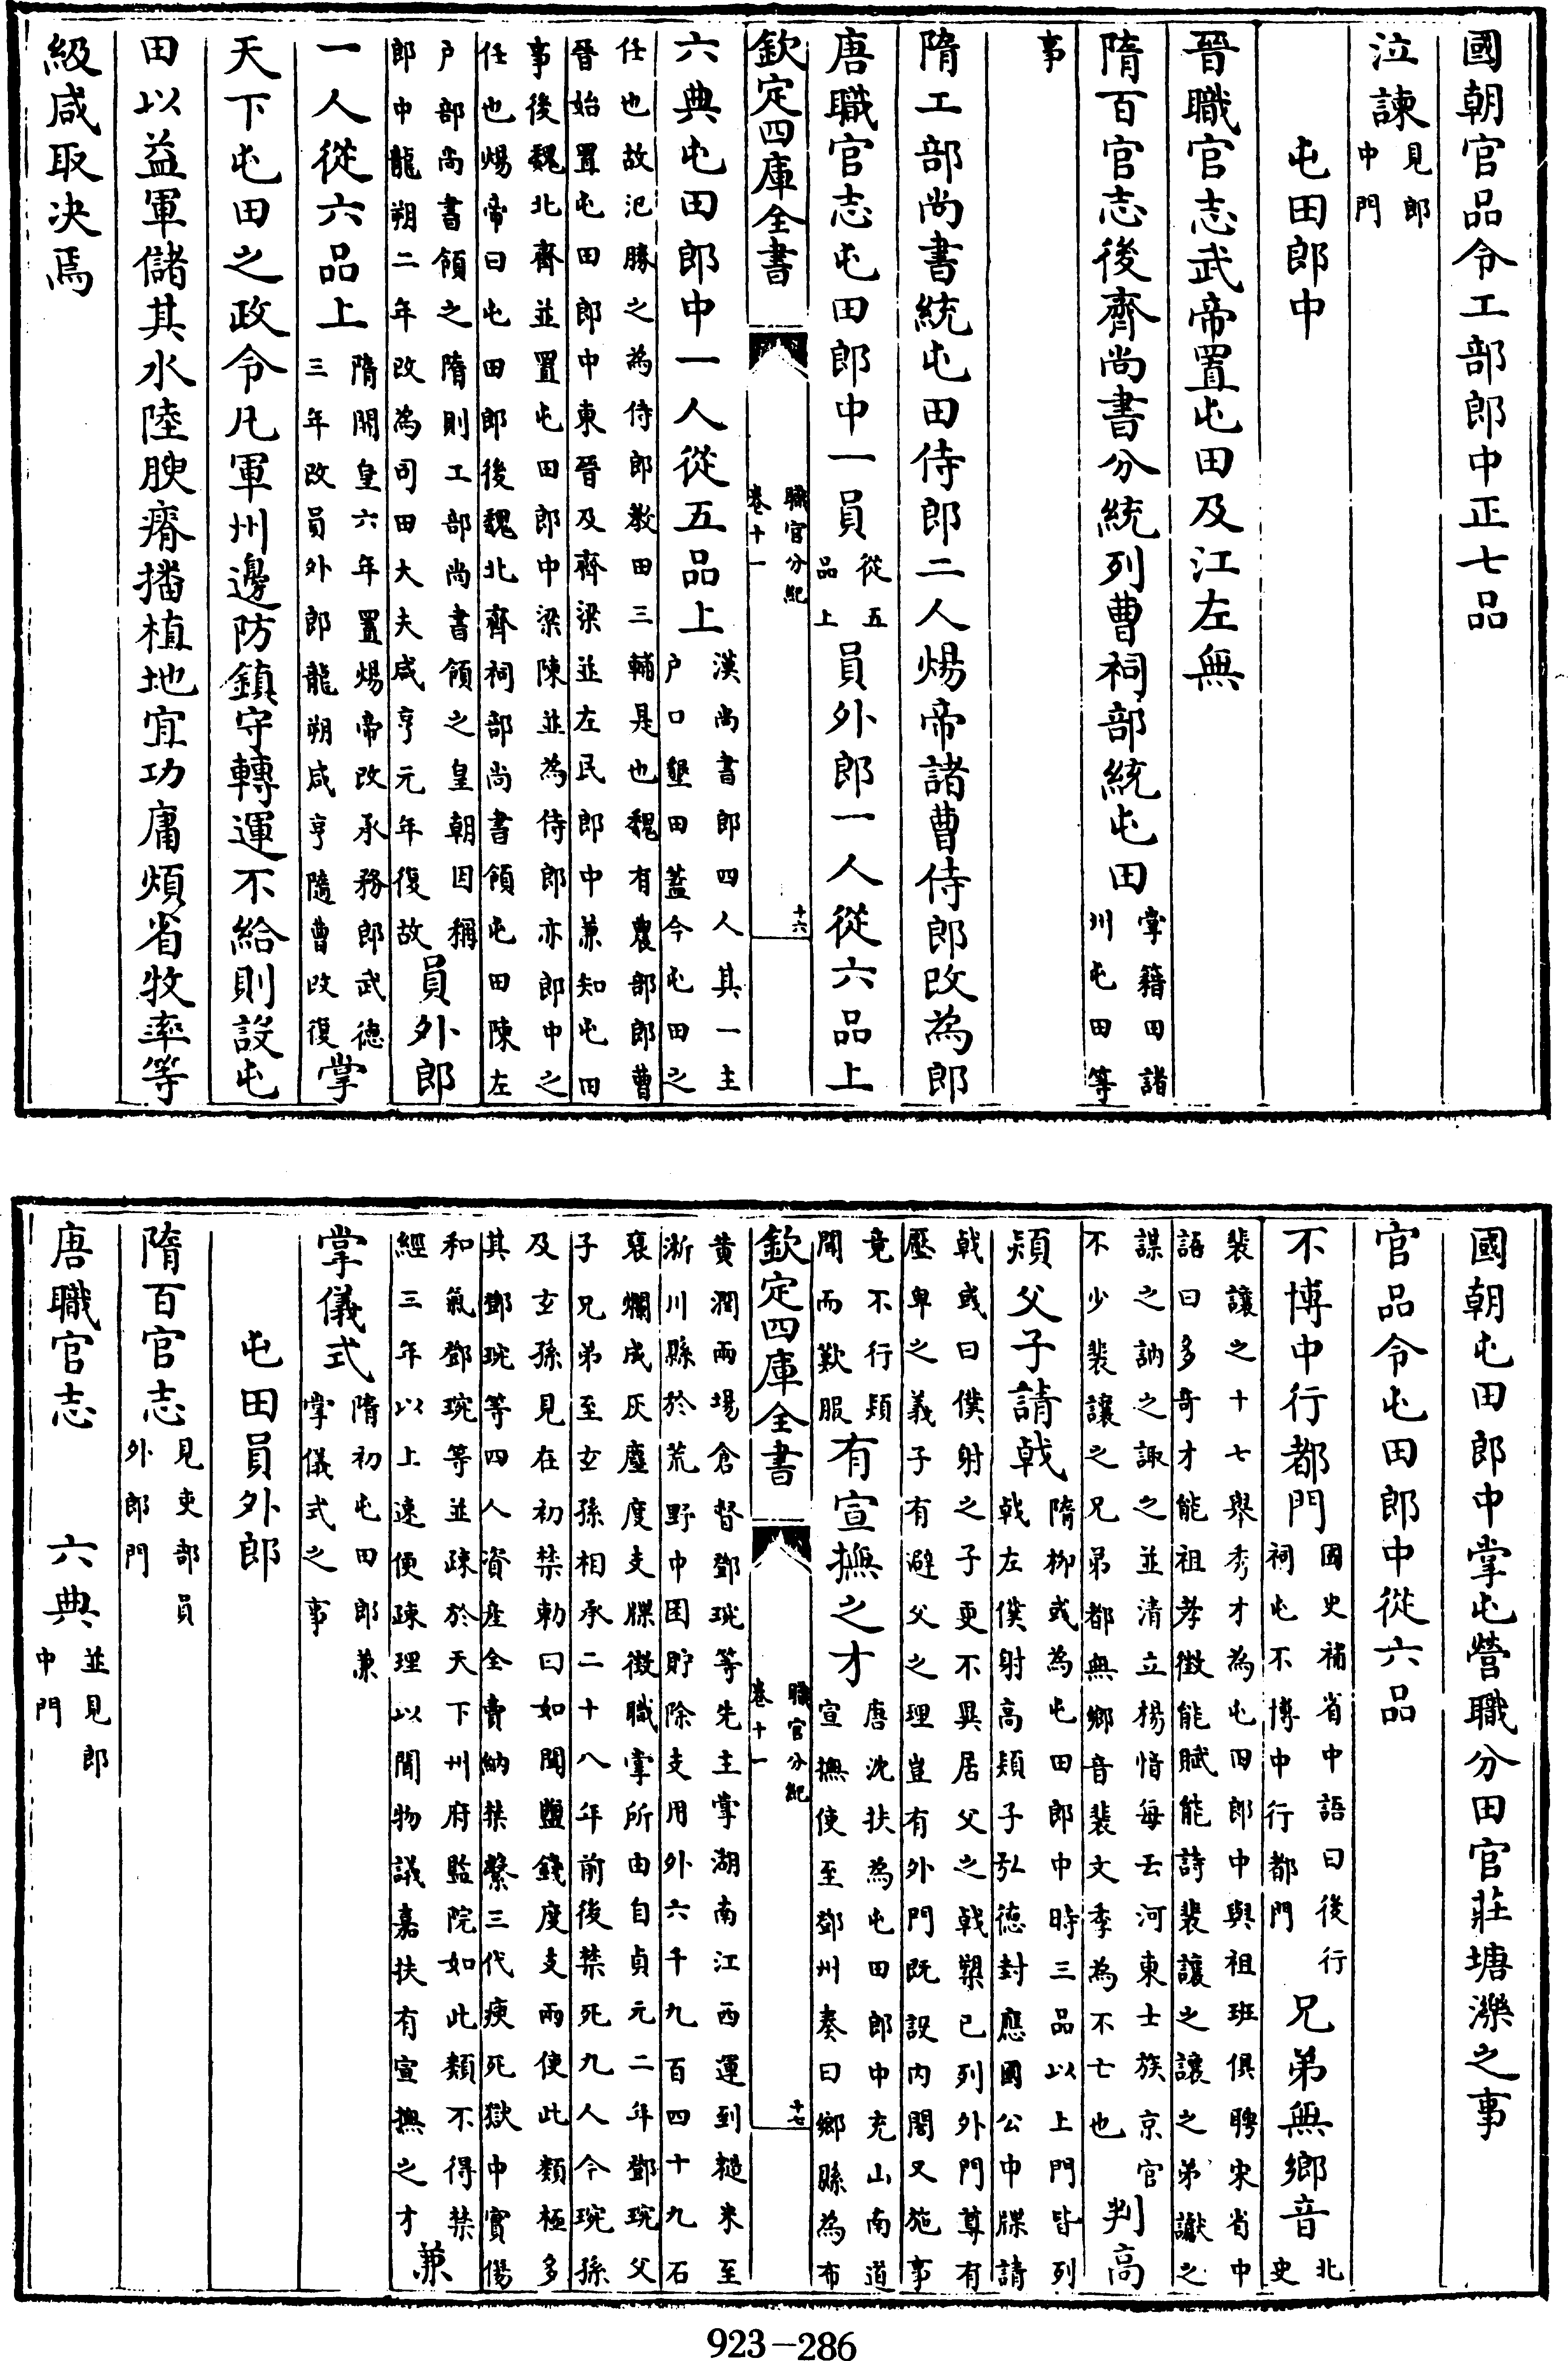 國朝官品令工部郎中正七品
泣諫見郎中門
屯田郎中
晉職官志武帝置屯田及江左無
隋百官志後齊尚書分統列曹祠部統屯田掌籍田諸川屯田等
事
隋工部尚書統屯田侍郎二人煬帝諸曹侍郎改為郎
唐職官志屯田郎中一員從五品上員外郎一人從六品上
欽定四庫全書 職官分紀卷十一 十六
六典屯田郎中一人從五品上漢尚書郎四人其一主户口墾田蓋今屯田之
任也故氾勝之為侍郎教田三輔是也魏有農部郎曹
晉始置屯田郎中東晉及齊梁並左民郎中兼知屯田
事後魏北齊並置屯田郎中梁陳並為侍郎亦郎中之
任也煬帝曰屯田郎後魏北齊祠部尚書領屯田陳左
户部尚書領之隋則工部尚書領之皇朝因稱
郎中龍朔二年改為司田大夫咸亨元年復故員外郎
一人從六品上隋開皇六年置煬帝改承務郎武德三年改員外郎龍朔咸亨隨曹改復掌
天下屯田之政令凡軍州邊防鎮守轉運不給則設屯
田以益軍儲其水陸腴瘠播植地宜功庸煩省牧率等
級咸取決焉
國朝屯田郎中掌屯營職分田官莊塘濼之事
官品令屯田郎中從六品
不博中行都門國史補省中語曰後行祠屯不博中行都門兄弟無鄉音北史
裴讓之十七舉秀才為屯田郎中與祖班俱聘宋省中
語曰多奇才能祖孝徵能賦能詩裴讓之讓之弟讞之
謀之訥之諏之並清立楊愔每云河東士族京官
不少裴讓之兄弟都無鄉音裴文季為不亡也判高
熲父子請戟隋柳彧為屯田郎中時三品以上門皆列戟左僕射高熲子弘德封應國公申牒請
戟彧曰僕射之子更不異居父之戟槊已列外門尊有
壓卑之義子有避父之理豈有外門既設內閤又施事
竟不行熲聞而歎服有宣撫之才唐沈扶為屯田郎中充山南道宣撫使至鄧州奏曰鄉縣為布
欽定四庫全書 職官分紀卷十一 十七
黄澗兩場倉督鄧琬等先主掌湖南江西運到糙米至
淅川縣於荒野中囤貯除支用外六千九百四十九石
裛爛成灰塵度支牒徵職掌所由自貞元二年鄧琬父
子兄弟至玄孫相承二十八年前後禁死九人今琬孫
及玄孫見在初禁勅曰如聞鹽錢度支兩使此類極多
其鄧琬等四人資産全賣納禁繫三代瘐死獄中實傷
和氣鄧琬等並疎於天下州府監院如此類不得禁
經三年以上速便疎理以聞物議嘉扶有宣撫之才兼
掌儀式隋初屯田郎兼掌儀式之事
屯田員外郎
隋百官志見吏部員外郎門
唐職官志 六典並見郎中門
923-286